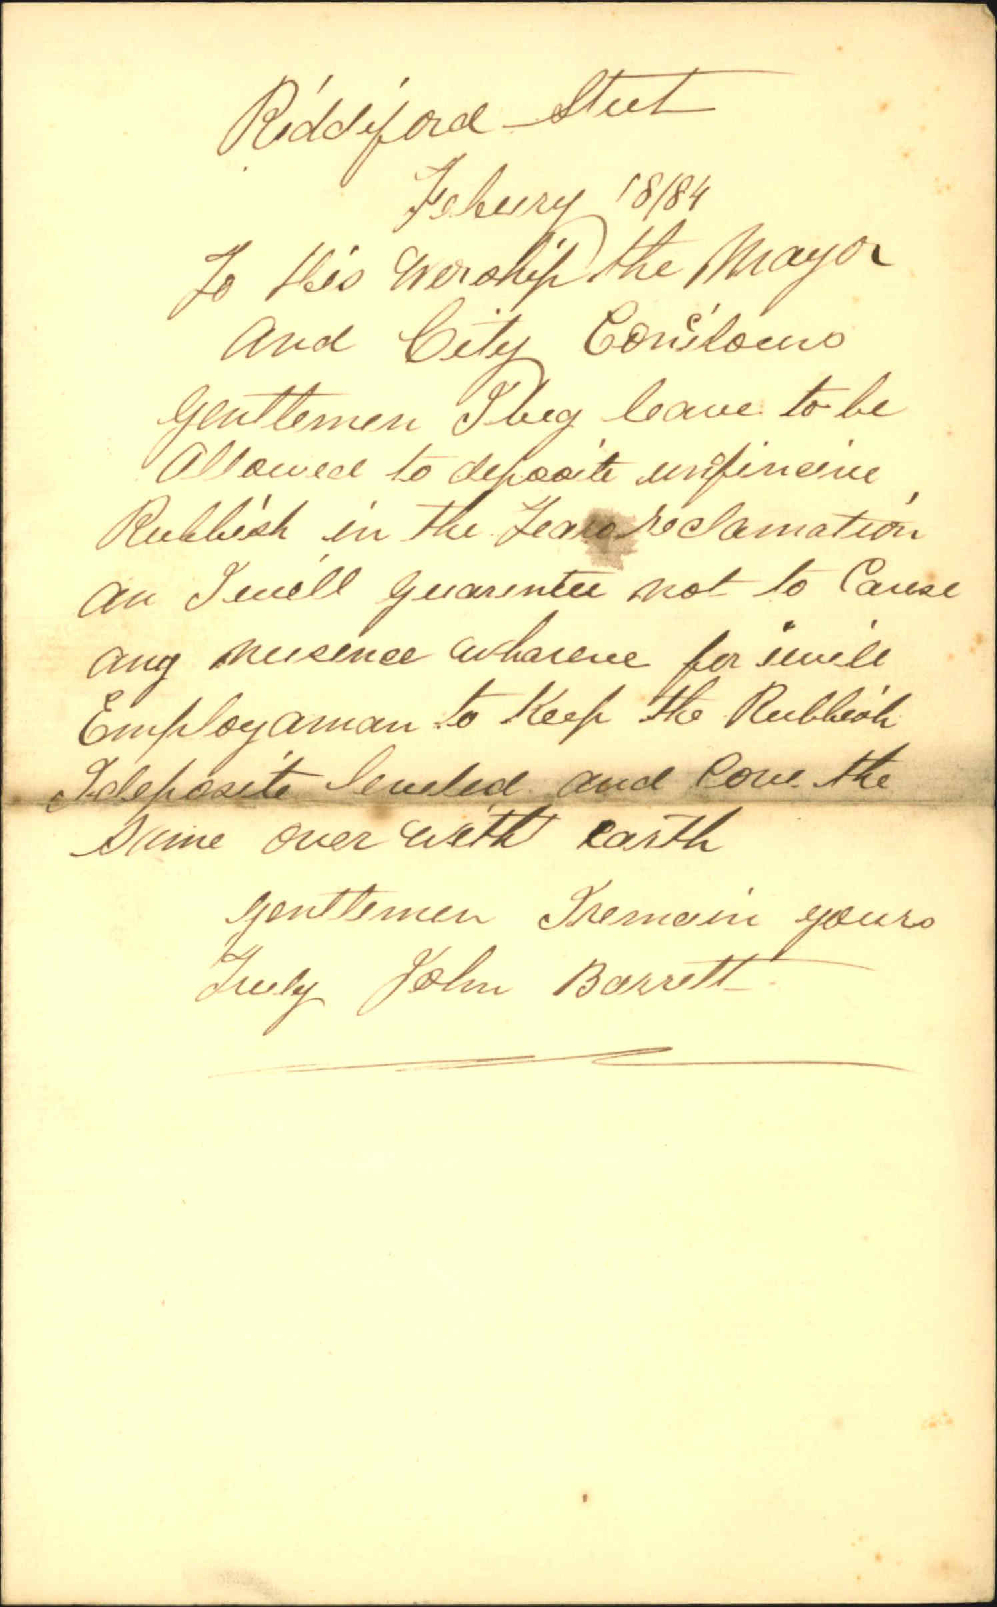 Riddiford Street
Febury 18/84
To His Worship the Mayor
And City Counslours
Gentlemen I beg leave to be
Allowed to deposite
Rubbish in the reclamation
an I will guarentee not to Cause
any nusence for i will
Employ a man to Keep the Rubbish
I deposite leveled and Cove the
Same over with Earth
Gentlemen I remain yours
Truly John Barrett